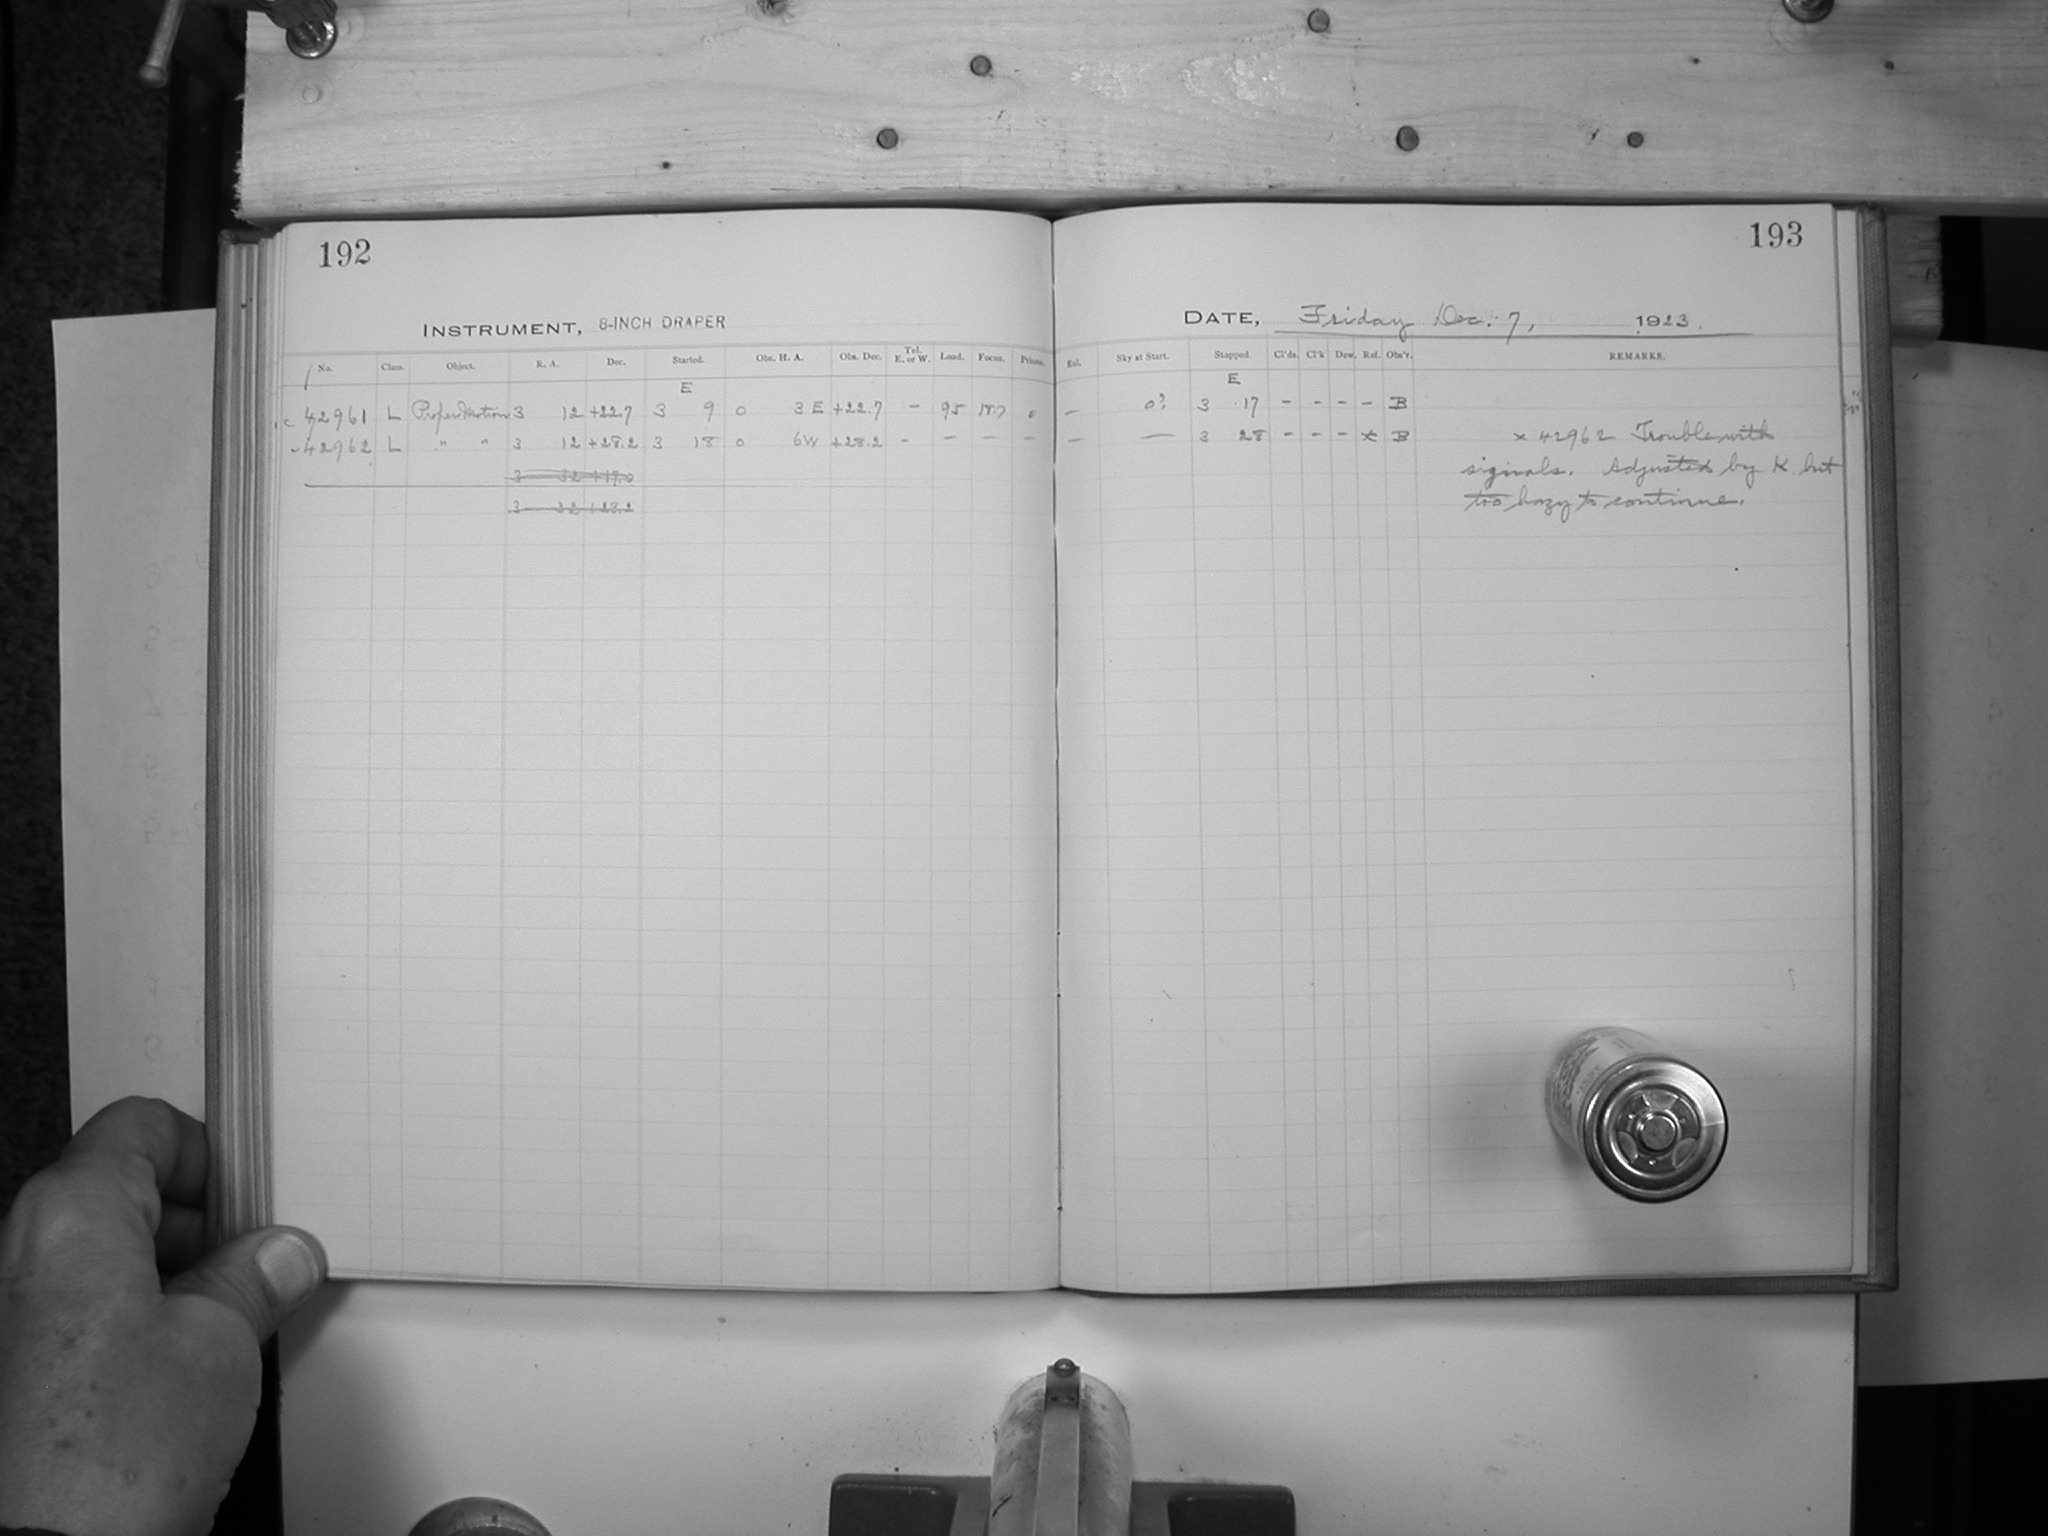 192
INSTRUMENT, 8-INCH DRAPER
No. Class. Object. R. A. Dec. Started. Obs. H. A. Obs. Dec. Tel. E. or W. Load. Focus. Prisms.
E
c 42961 L Proper Motion 3 12 +22.7 3 9 0 3 E +22.7 - 95 18.7 0
- 42962 L " " 3 12 +28.2 3 18 0 6W +28.2 - - - -
3 32 +17.0
3 32 +28.2
193
DATE, Friday Dec. 7, 1923.
Exl. Sky at Start. Stopped Cl'ds. Cl'k Dew. Ref. Obs'r. REMARKS.
E
- 0? 3 17 - - - - B
- - 3 28 - - - x B x 42962 Trouble with
signals. Adjusted by K. but
too hazy to continue.